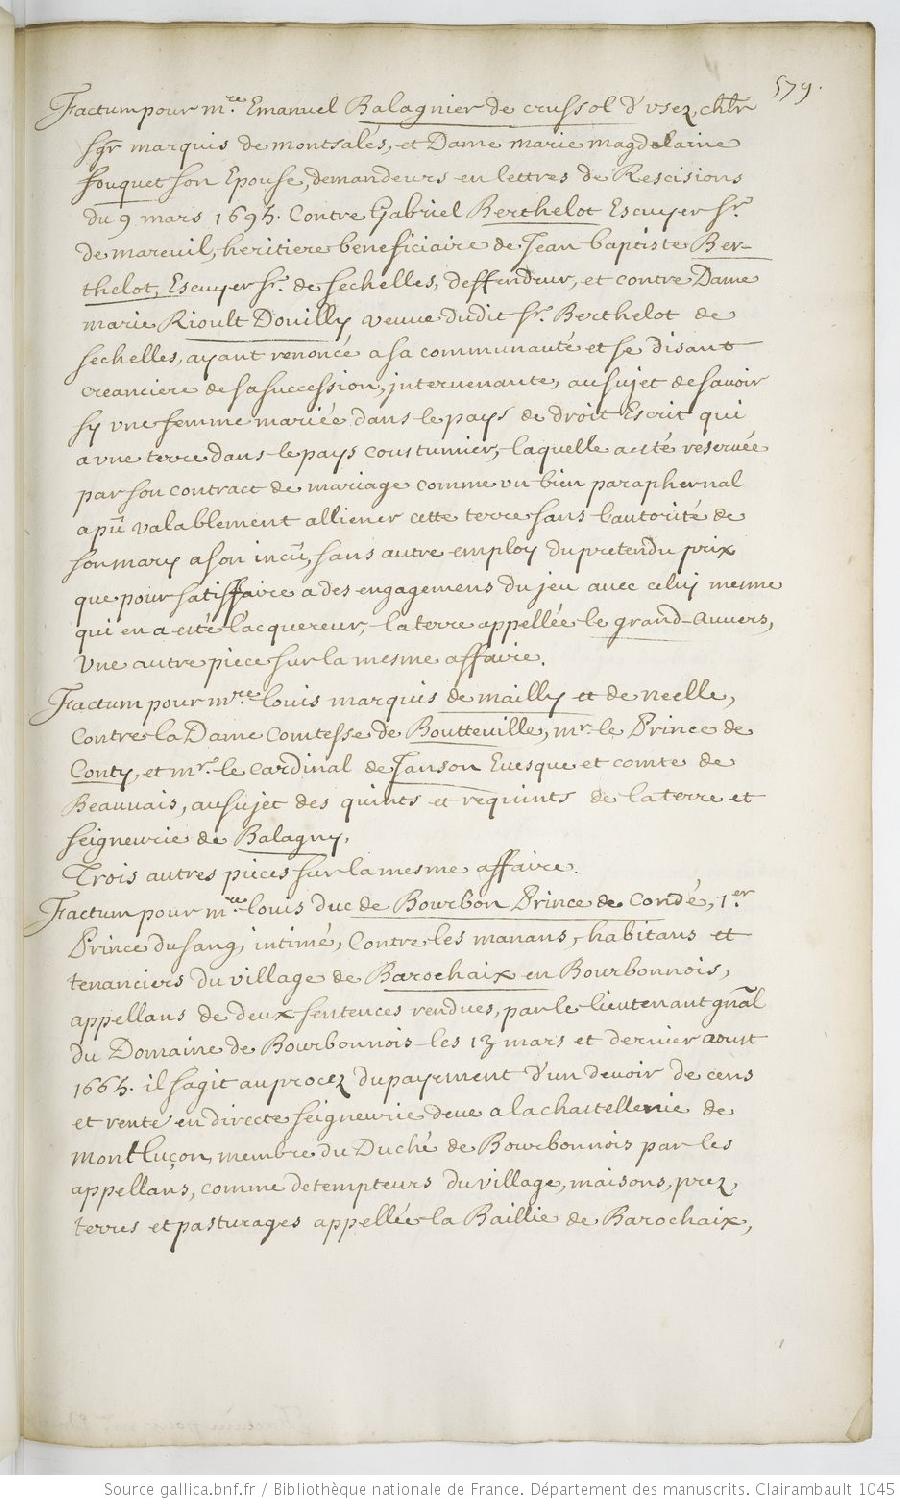 579.
Factum pour mre. Emanuel Balagnier de crussol d'usez, chlr
sgr marquis de montsalés, et Dame marie magdelaine
fouquet son Epouse, demandeurs en lettres de Rescisions
du 9 mars 1695. Contre Gabriel Berthelot Escuyer sr.
de mareuil, heritiere beneficiaire de Jean baptiste Ber-
thelot, Escuyer sr. de sechelles, deffendeur, et contre Dame
marie Rioult Douilly veuve dudit sr. Berthelot de
sechelles, ayant renoncé a sa communauté et se disant
creanciere de sa succession, intervenante, au sujet de savoir
sy une femme mariée dans le pays de droit Escrit qui
a une terre dans le pays coustumier, laquelle a esté reservée
par son contract de mariage comme un bien paraphernal
a pû valablement alliener cette terre sans l'autorité de
son mary a son inçû, sans autre employ du pretendu prix
que pour satisffaire a des engagemens du jeu avec celuy mesme
qui en a esté l'acquereur, la terre appellée le grand-Auvers,
Une autre piece sur la mesme affaire.
Factum pour mre. louis marquis de mailly et de neelle,
Contre la Dame Comtesse de Boutteville, mr. le Prince de
Conty, et mr. le Cardinal de Janson Evesque et comte de
Beauvais, au sujet des quints et requints de la terre et
seigneurie de Balagny,
Trois autres pieces sur la mesme affaire.
Factum pour mre. louis duc de Bourbon Prince de Condé, 1er
Prince du sang, intimé, Contre les manans, habitans et
tenanciers du village de Barochaix en Bourbonnois,
appellans de deux sentences rendues, par le lieutenant gñal
du Domaine de Bourbonnois les 13 mars et dernier aoust
1665. il s'agit au procez du payement d'un devoir de cens
et rente en directe seigneurie deue a la chastellenie de
montluçon, membre du Duché de Bourbonnois par les
appellans, comme detempteurs du village, maisons, prez,
terres et pasturages appellée la Baillie de Barochaix,
Source gallica.bnf.fr / Bibliothèque nationale de France. Département des manuscrits. Clairambault 1045